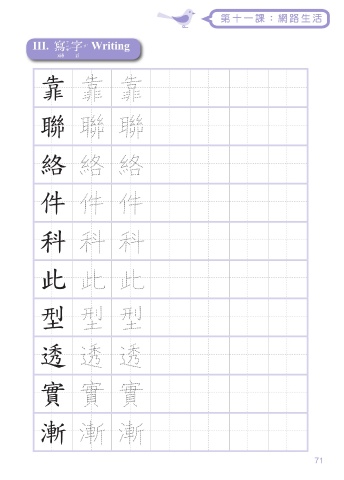 第十一課：網路生活
III. 寫字 Writing
靠 靠 靠
聯 聯 聯
絡 絡 絡
件 件 件
科 科 科
此 此 此
型 型 型
透 透 透
實 實 實
漸 漸 漸
71